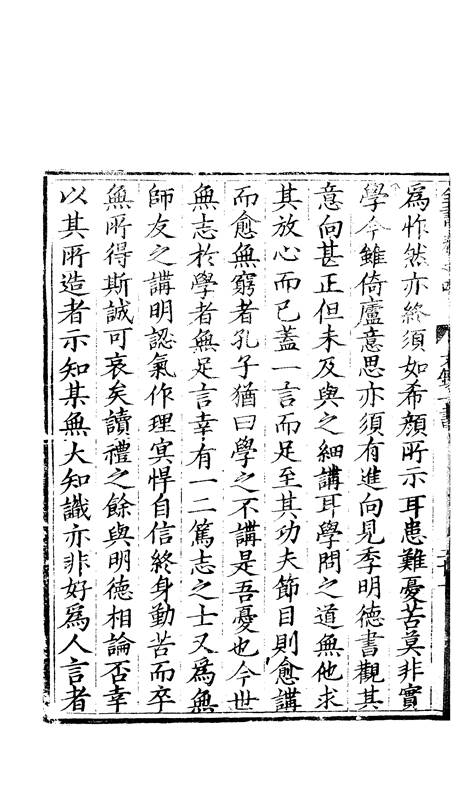 爲怍然亦終須如希顔所示耳患難憂苦莫非實
學今雖倚廬意思亦須有進向見季明德書觀其
意向甚正但未及與之細講耳學問之道無他求
其放心而已蓋一言而足至其功夫節目則愈講
而愈無窮者孔子猶曰學之不講是吾憂也今世
無志於學者無足言幸有一二篤志之士又爲無
師友之講明認氣作理冥悍自信終身勤苦而卒
無所得斯誠可哀矣讀禮之餘與明德相論否幸
以其所造者示知某無大知識亦非好爲人言者